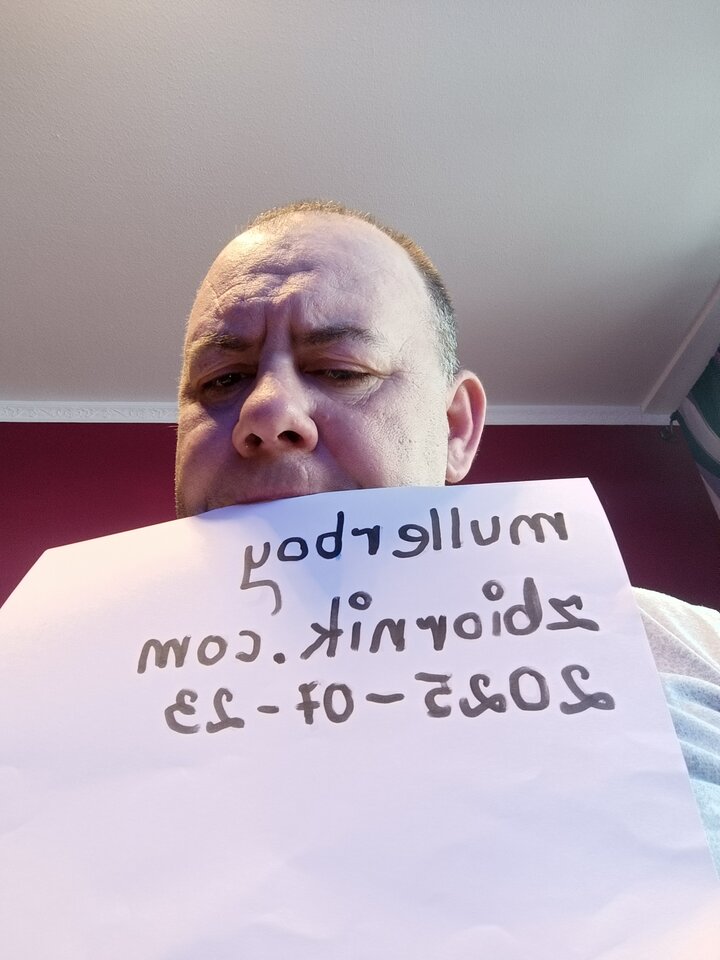 mullerboy
zbiornik.com
2025-07-23